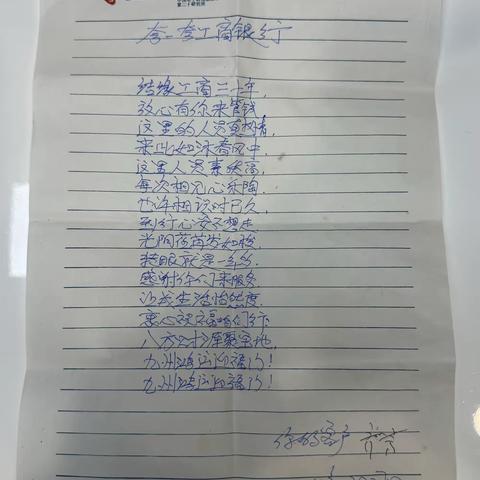 夸一夸工商银行
结缘工商三十年,
放心有你来管钱
这里的人员真热情,
来此如沐春风中,
这里人员素质高,
每次相见心乐陶
也许相识时已久,
到行心安不想走
光阴荏苒岁如梭
转眼就是一年多
感谢你们来服务
让我生活怡然度
衷心祝福咱们行
八方
九州鸿运迎福门!
九州鸿运迎福门!
你的客户